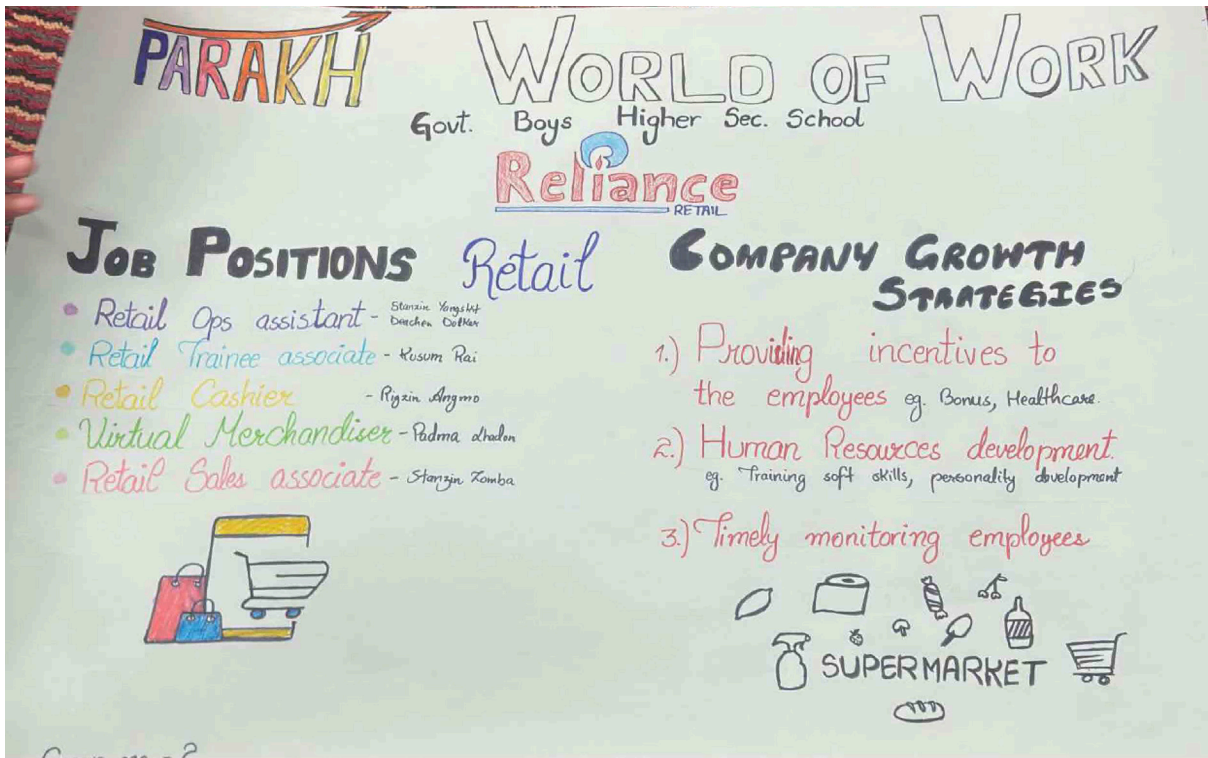 PARAKH
WORLD OF WORK
Govt. Boys Higher Sec. School
Reliance
RETAIL
JOB POSITIONS
Retail
• Retail Ops assistant - Stanzin Yangskit
Deachen Dolker
• Retail Trainee associate - Kusum Rai
• Retail Cashier - Rigzin Angmo
• Virtual Merchandiser - Padma dhadon
• Retail Sales associate - Stanzin Zomba
COMPANY GROWTH
STRATEGIES
1.) Providing incentives to
the employees eg. Bonus, Healthcare.
2.) Human Resources development.
eg. Training soft skills, personality development
3.) Timely monitoring employees
SUPERMARKET